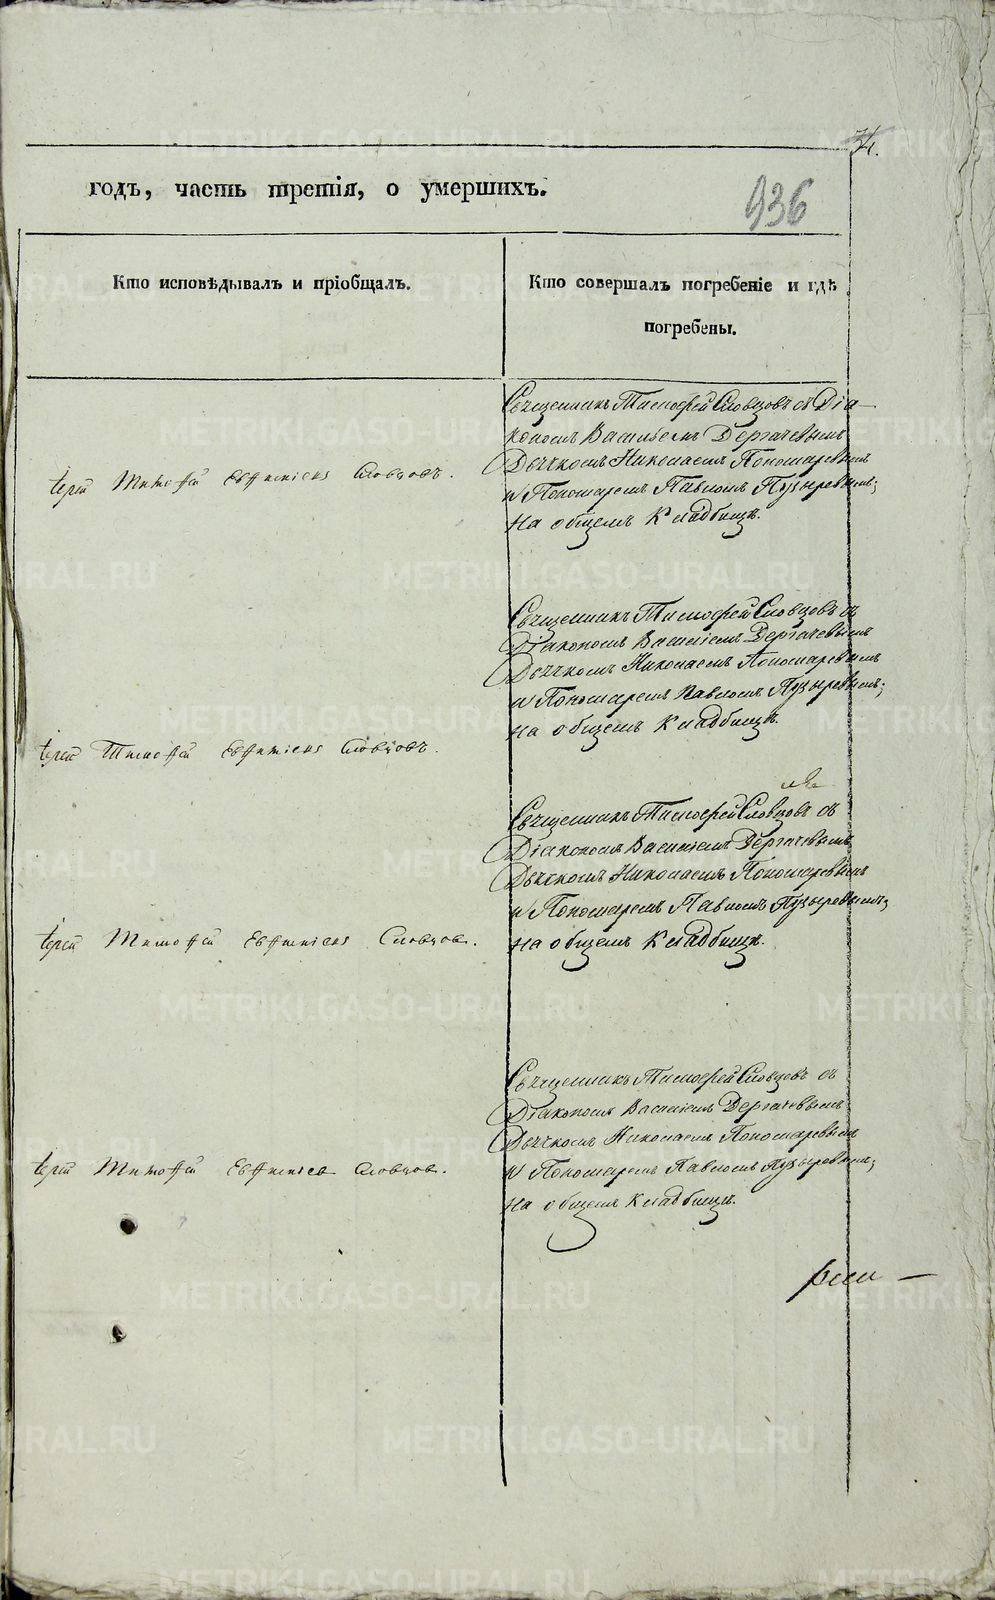 METRIKI.GASO-URAL.RU
годъ, часть третія, о умершихъ.
936
Кто исповѣдывалъ и пріобщалъ.
Кто совершалъ погребеніе и гдѣ
погребены.
Священникъ Тимофей Словцовъ съ Діа-
кономъ Васильемъ Дергачевымъ
Дьячкомъ Николаемъ Пономаревымъ
и Пономаремъ Павломъ Пузыревымъ;
на общемъ Кладбищѣ.
Іерей Тимофей Словцовъ.
Священникъ Тимофей Словцовъ съ
Діакономъ Василіемъ Дергачевымъ
Дьячкомъ Николаемъ Пономаревымъ
и Пономаремъ Павломъ Пузыревымъ;
на общемъ Кладбищѣ.
Іерей Тимофей Словцовъ.
Священникъ Тимофей Словцовъ съ
Діакономъ Василіемъ Дергачевымъ
Дьячкомъ Николаемъ Пономаревымъ
и Пономаремъ Павломъ Пузыревымъ;
на общемъ Кладбищѣ.
Іерей Тимофей Словцов.
Священникъ Тимофей Словцовъ съ
Діакономъ Василіемъ Дергачевымъ
Дьячкомъ Николаемъ Пономаревымъ
и Пономаремъ Павломъ Пузыревымъ;
на общемъ Кладбищѣ.
Іерей Тимофей Словцов.